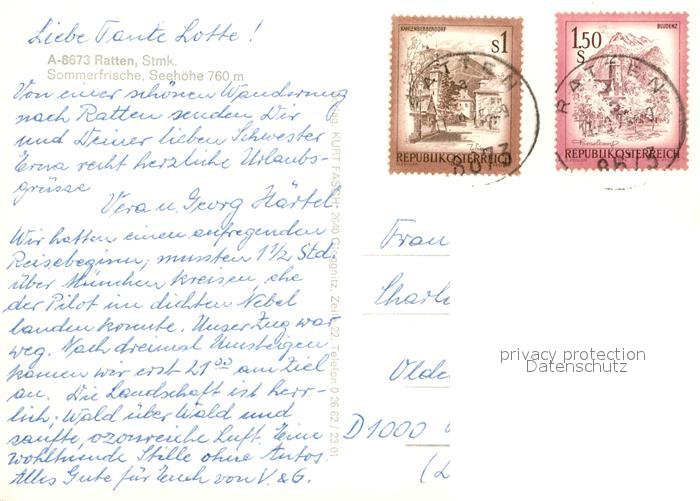 Liebe Tante Lotte!
A-8673 Ratten, Stmk.
Sommerfrische, Seehöhe 760 m
Von einer schönen Wanderung
nach Ratten senden Dir
und Deiner lieben Schwester
Erna recht herzliche Urlaubs-
grüsse
Vera u. Georg Härtel
Wir hatten einen aufregenden
Reisebeginn; mussten 1½ Std.
über München kreisen, ehe
der Pilot im dichten Nebel
landen konnte. Unser Zug war
weg. Nach dreimal Umsteigen
kamen wir erst 21⁰⁰ am Ziel
an. Die Landschaft ist herr-
lich; Wald über Wald und
sanfte, ozonreiche Luft. Eine
wohltuende Stille ohne Autos.
Alles Gute für Euch von V. & G.
KURT FASCH 2640 Gloggnitz, Zeile 22, Telefon 0 26 62 / 23 01
KAHLENBERGERDORF
S1
REPUBLIK ÖSTERREICH
BLUDENZ
1.50
S
REPUBLIK ÖSTERREICH
RATTEN
8673
RATTEN
8673
Frau
Charl
Olde
D 1000
privacy protection
Datenschutz